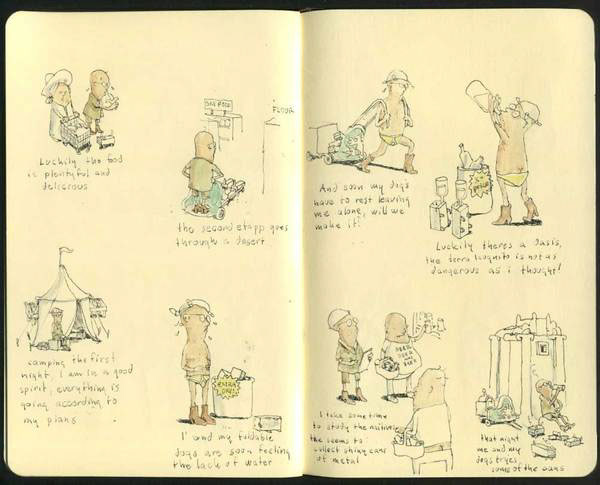 Luckily the food
is plentyful and
delicious
FLOUR
the second etapp goes
through a desert
camping the first
night, I am in a good
spirit, everything is
going according to
my plans
EXTRA
I' and my fuldable
dogs are soon feeling
the lack of water
And soon my dogs
have to rest leaving
me alone, will we
make it?
Luckily theres a oasis,
the terra incognito is not as
dangerous as i thought!
BEER
I take some time
to study the natives
the seems to
collect shiny cans
of metal
that night
me and my
dogs tryes
some of the cans